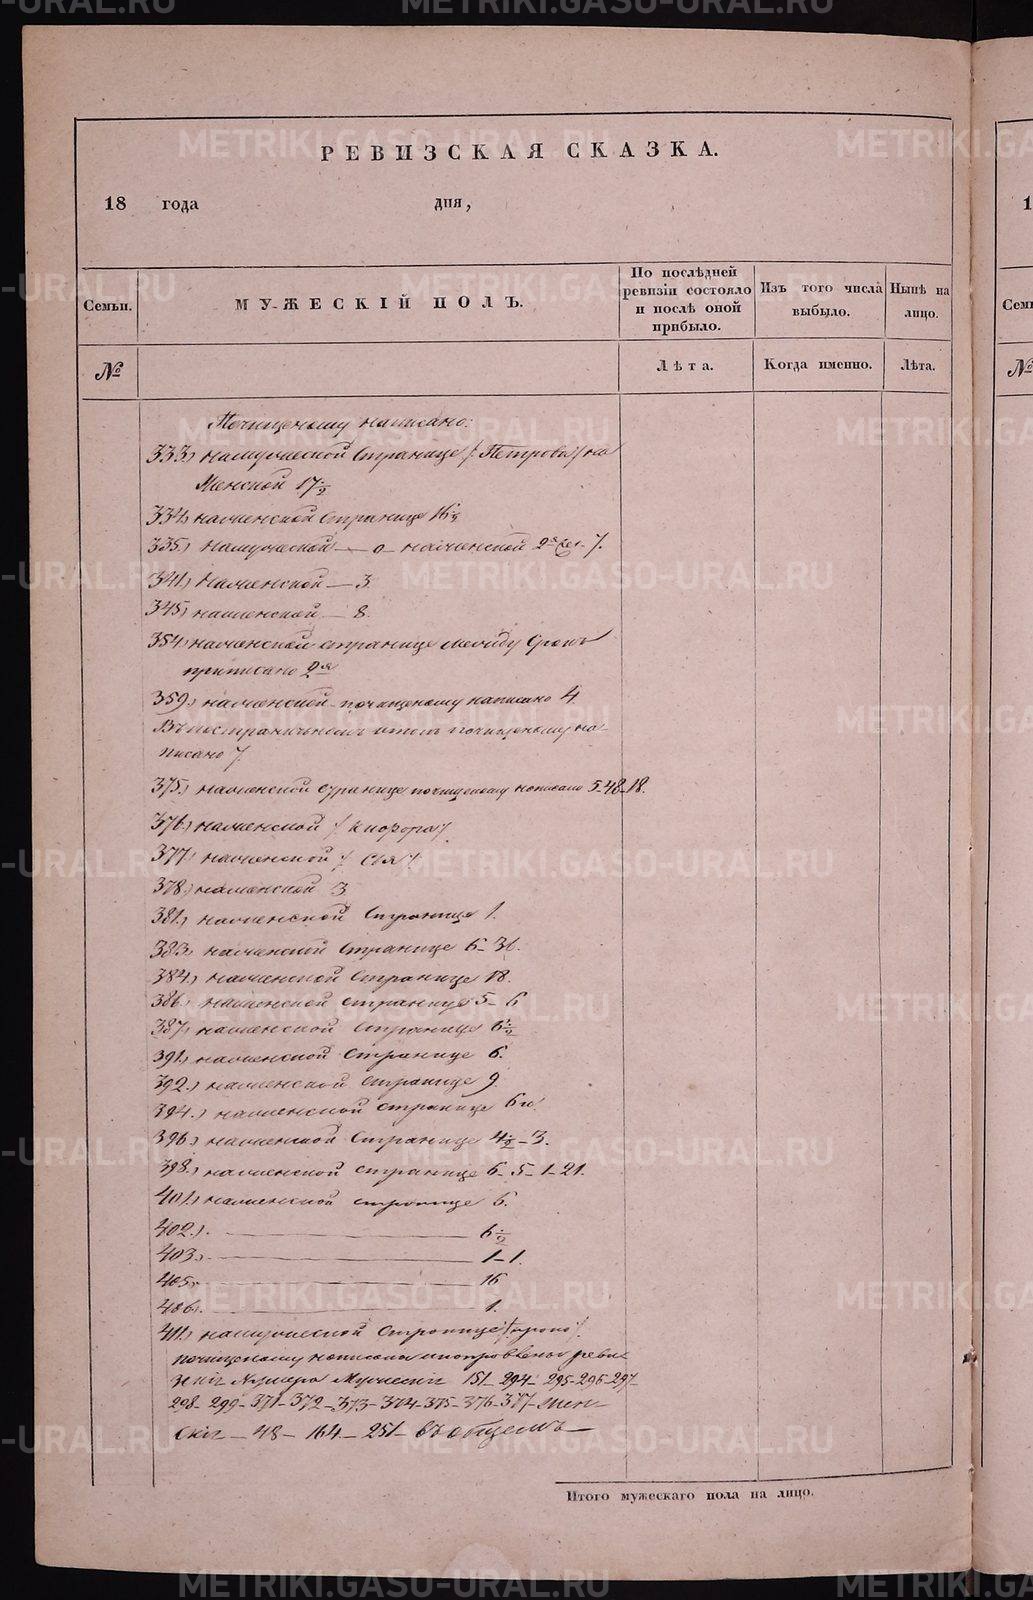 РЕВИЗСКАЯ СКАЗКА.
18 года дня,
Семьи.
МУЖЕСКІЙ ПОЛЪ.
По послѣдней ревизіи состояло и послѣ оной прибыло.
Изъ того числа выбыло.
Нынѣ на лицо.
№
Лѣта.
Когда именно.
Лѣта.
Почищеному написано:
333.) на мужеской странице /: Петровъ :/ на
Женской 17 1/2
334.) на женской странице 16
335.) на мужеской — 0 — на женской 7.
341.) На женской — 3.
345.) на женской — 8.
354.) на женской странице между строкъ
приписано 2я
359.) на женской почищеному написано 4.
Въ постраничномъ итогѣ почищеному на-
писано 7.
375.) на женской странице почищеному написано 5. 48-18.
376.) на женской
377.) на женской
378.) на женской 3
381.) на женской странице 1.
383.) на женской странице 6-36.
384.) на женской странице 18.
386.) на женской странице 5-6
387.) на женской странице 6 1/2
391.) на женской странице 6.
392.) на женской странице 9.
394.) на женской странице
396.) на женской странице 4 1/2 - 3.
398.) на женской странице 6-5-1-21.
401.) на женской странице 6.
402.) — 6 1/2
403.) — 1-1.
405. — 16
406. — 1.
411.) на мужеской странице
почищеному написаны и поправлены реви-
зскіе Нумера Мужескіе 151-294-295-296-297-
298-299-371-372-373-374-375-376-377- Жен-
скіе — 48-164-251- въ общемъ —
Итого мужескаго пола на лицо.
METRIKI.GASO-URAL.RU